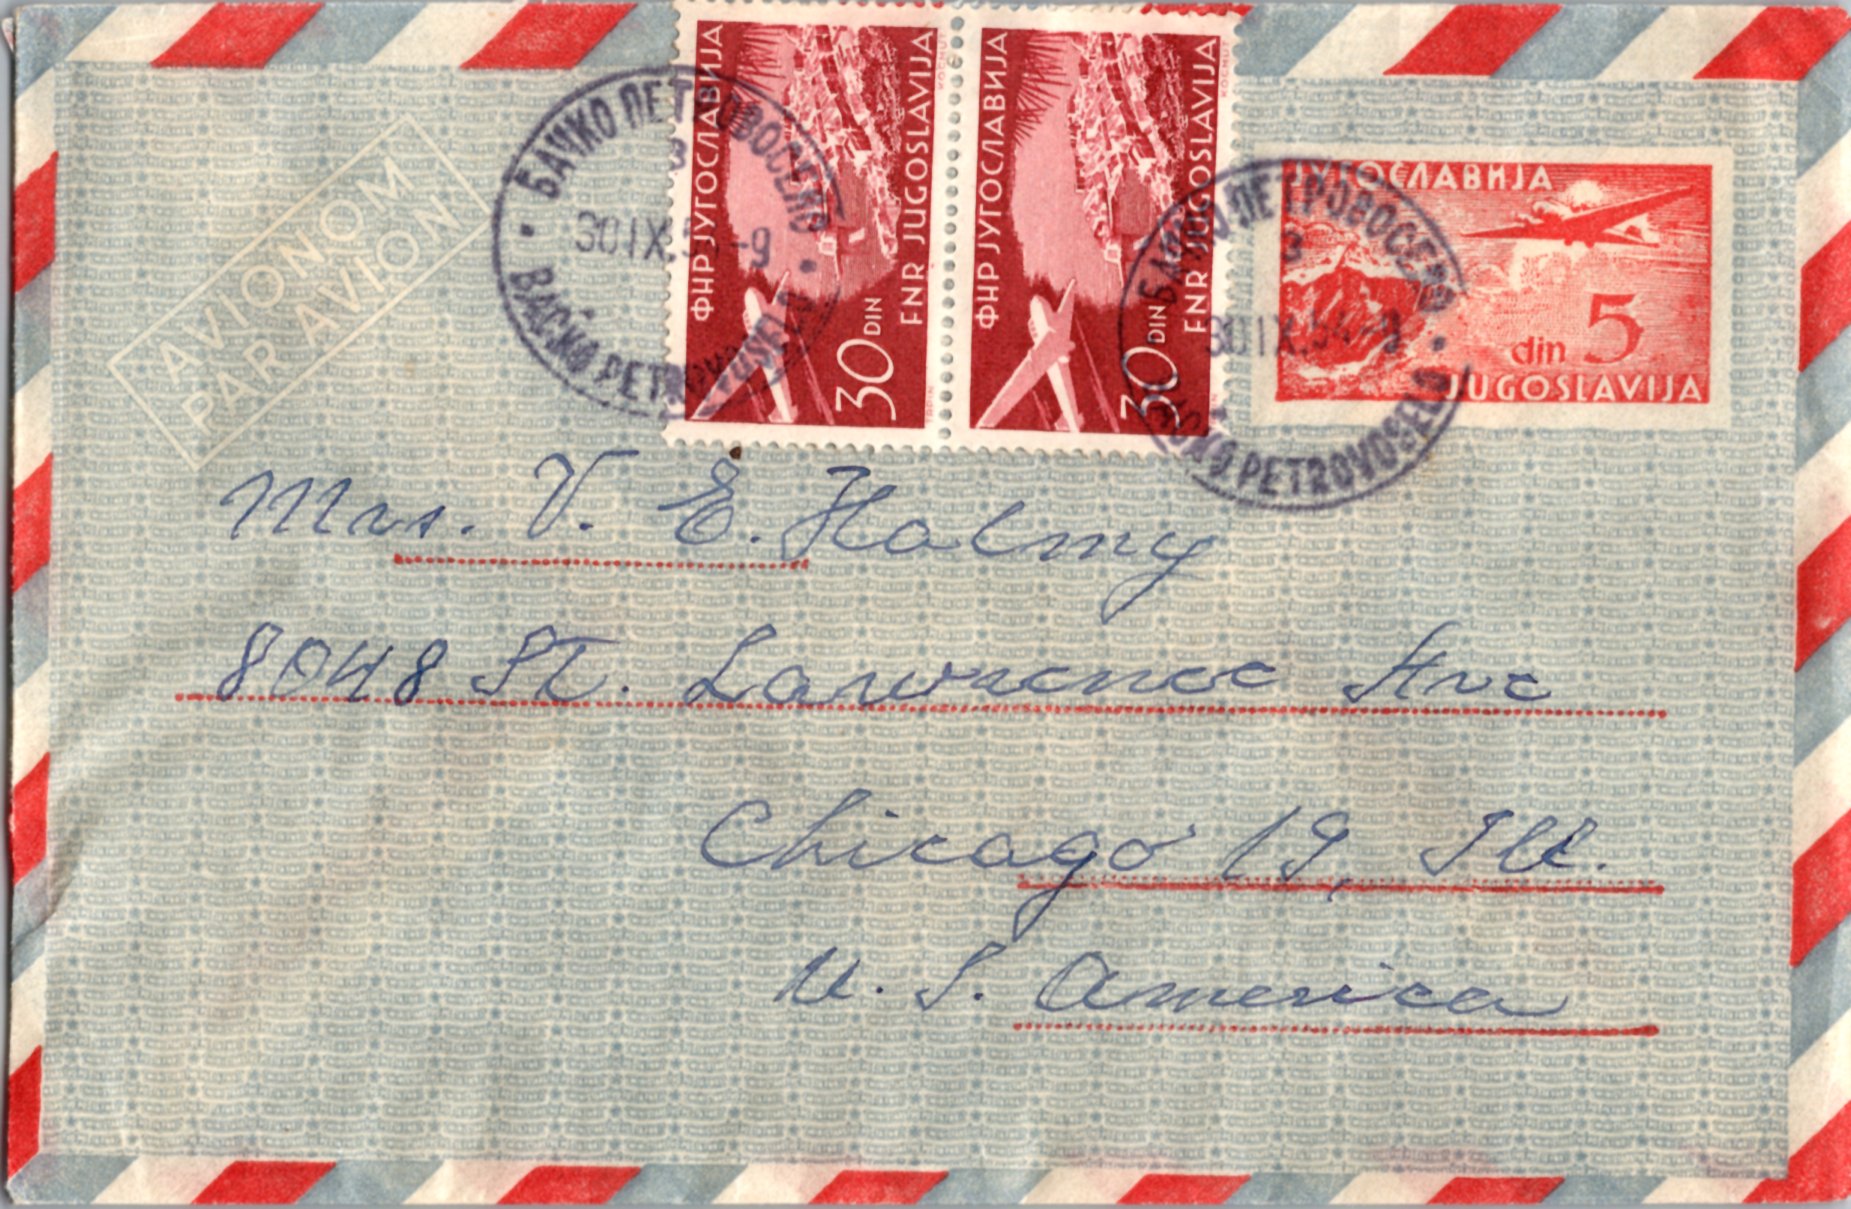 AVIONOM
PAR AVION
ФНР ЈУГОСЛАВИЈА
30 DIN
FNR JUGOSLAVIJA
ФНР ЈУГОСЛАВИЈА
30 DIN
FNR JUGOSLAVIJA
ЈУГОСЛАВИЈА
din 5
JUGOSLAVIJA
БАЧКО ПЕТРОВОСЕЛО
30.IX.5 -9
BAČKO PETROVOSELO
БАЧКО ПЕТРОВОСЕЛО
30.IX.54
BAČKO PETROVOSELO
Mrs. V. E. Halmy
8048 St. Lawrence Ave
Chicago 19, Ill.
U. S. America